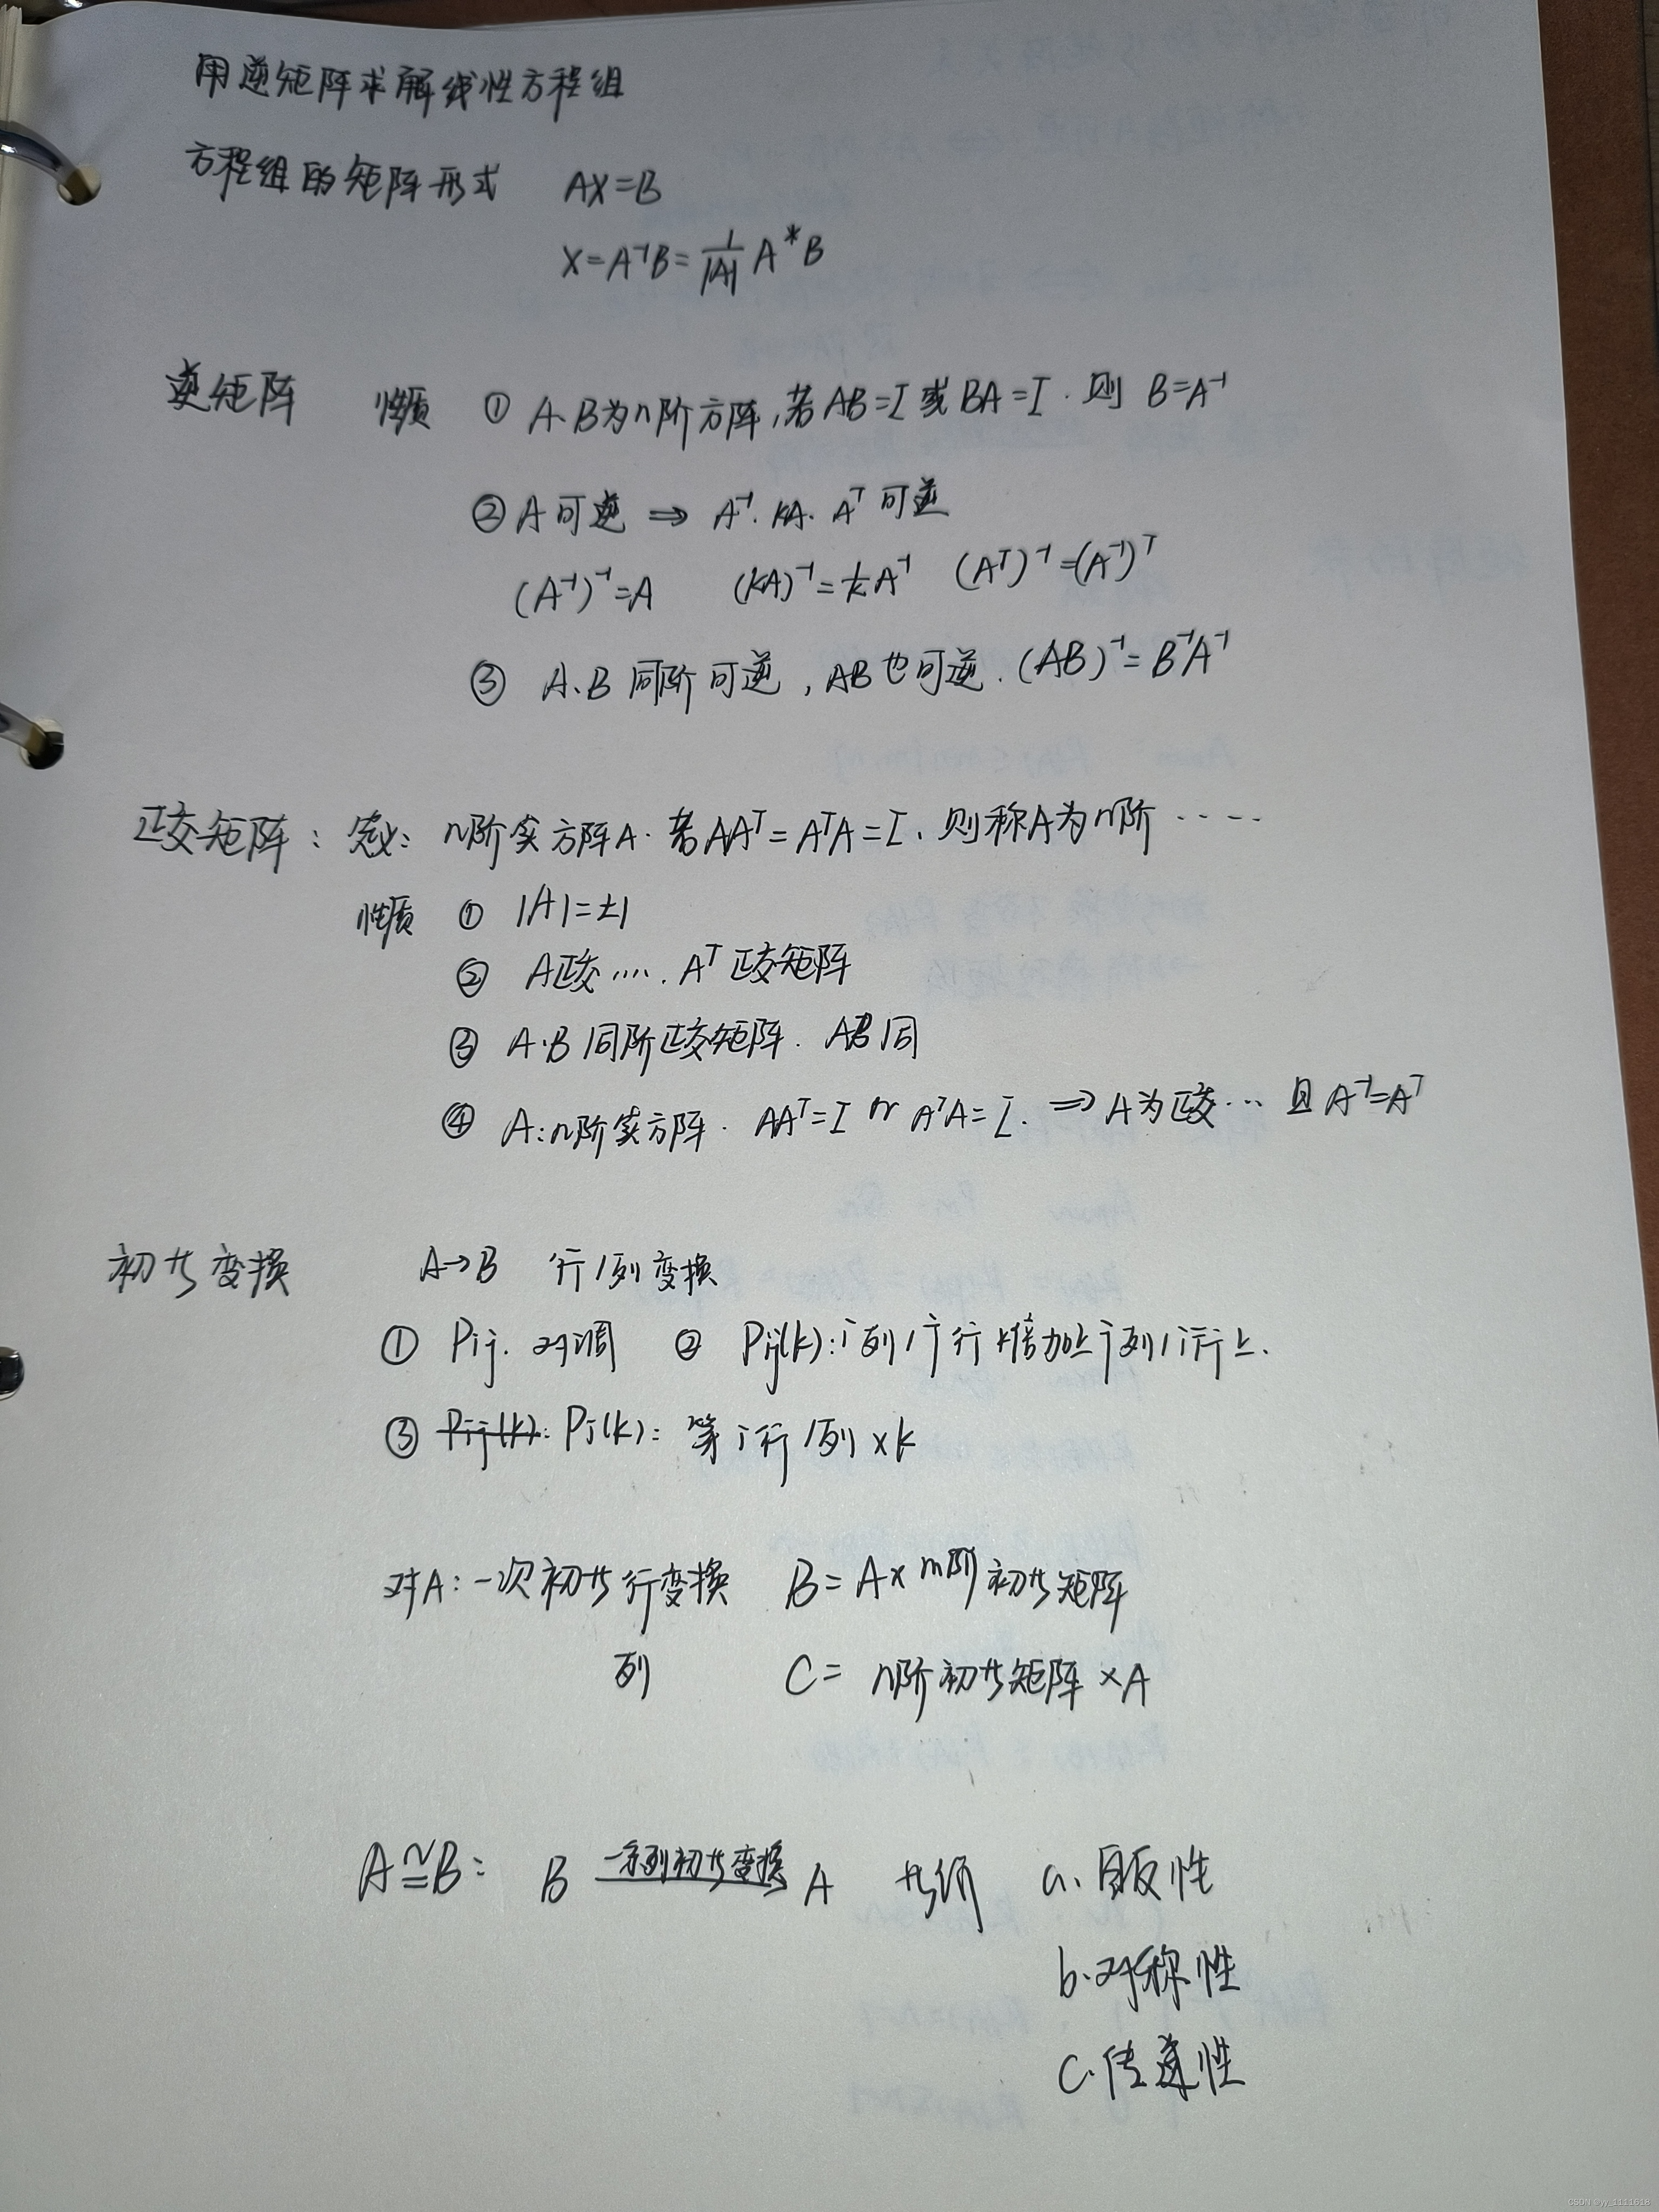 用逆矩阵求解线性方程组
方程组的矩阵形式 AX=B
X=A⁻¹B=1/|A| A*B
逆矩阵 性质 ① A、B为n阶方阵,若AB=I或BA=I.则 B=A⁻¹
② A可逆 ⇒ A⁻¹. kA. Aᵀ可逆
(A⁻¹)⁻¹=A (kA)⁻¹=1/k A⁻¹ (Aᵀ)⁻¹=(A⁻¹)ᵀ
③ A、B 同阶可逆,AB也可逆.(AB)⁻¹=B⁻¹A⁻¹
正交矩阵:定义:n阶实方阵A.若AAᵀ=AᵀA=I、则称A为n阶····
性质 ① |A|=±1
② A正交.... Aᵀ正交矩阵
③ A·B同阶正交矩阵. AB同
④ A:n阶实方阵. AAᵀ=I or AᵀA=I. ⇒ A为正交··· 且A⁻¹=Aᵀ
初廾变换 A→B 行/列变换
① Pij. 对调 ② Pij(k):i列/j行k倍加上j列/i行上.
③ Pij(k): Pj(k): 第i行/列×k
对A:一次初廾行变换 B=A×m阶初廾矩阵
列 C=n阶初廾矩阵×A
A≅B: B 一系列初廾变换 A 廾价 a.自反性
b.对称性
c.传递性
CSDN @yy_1111618